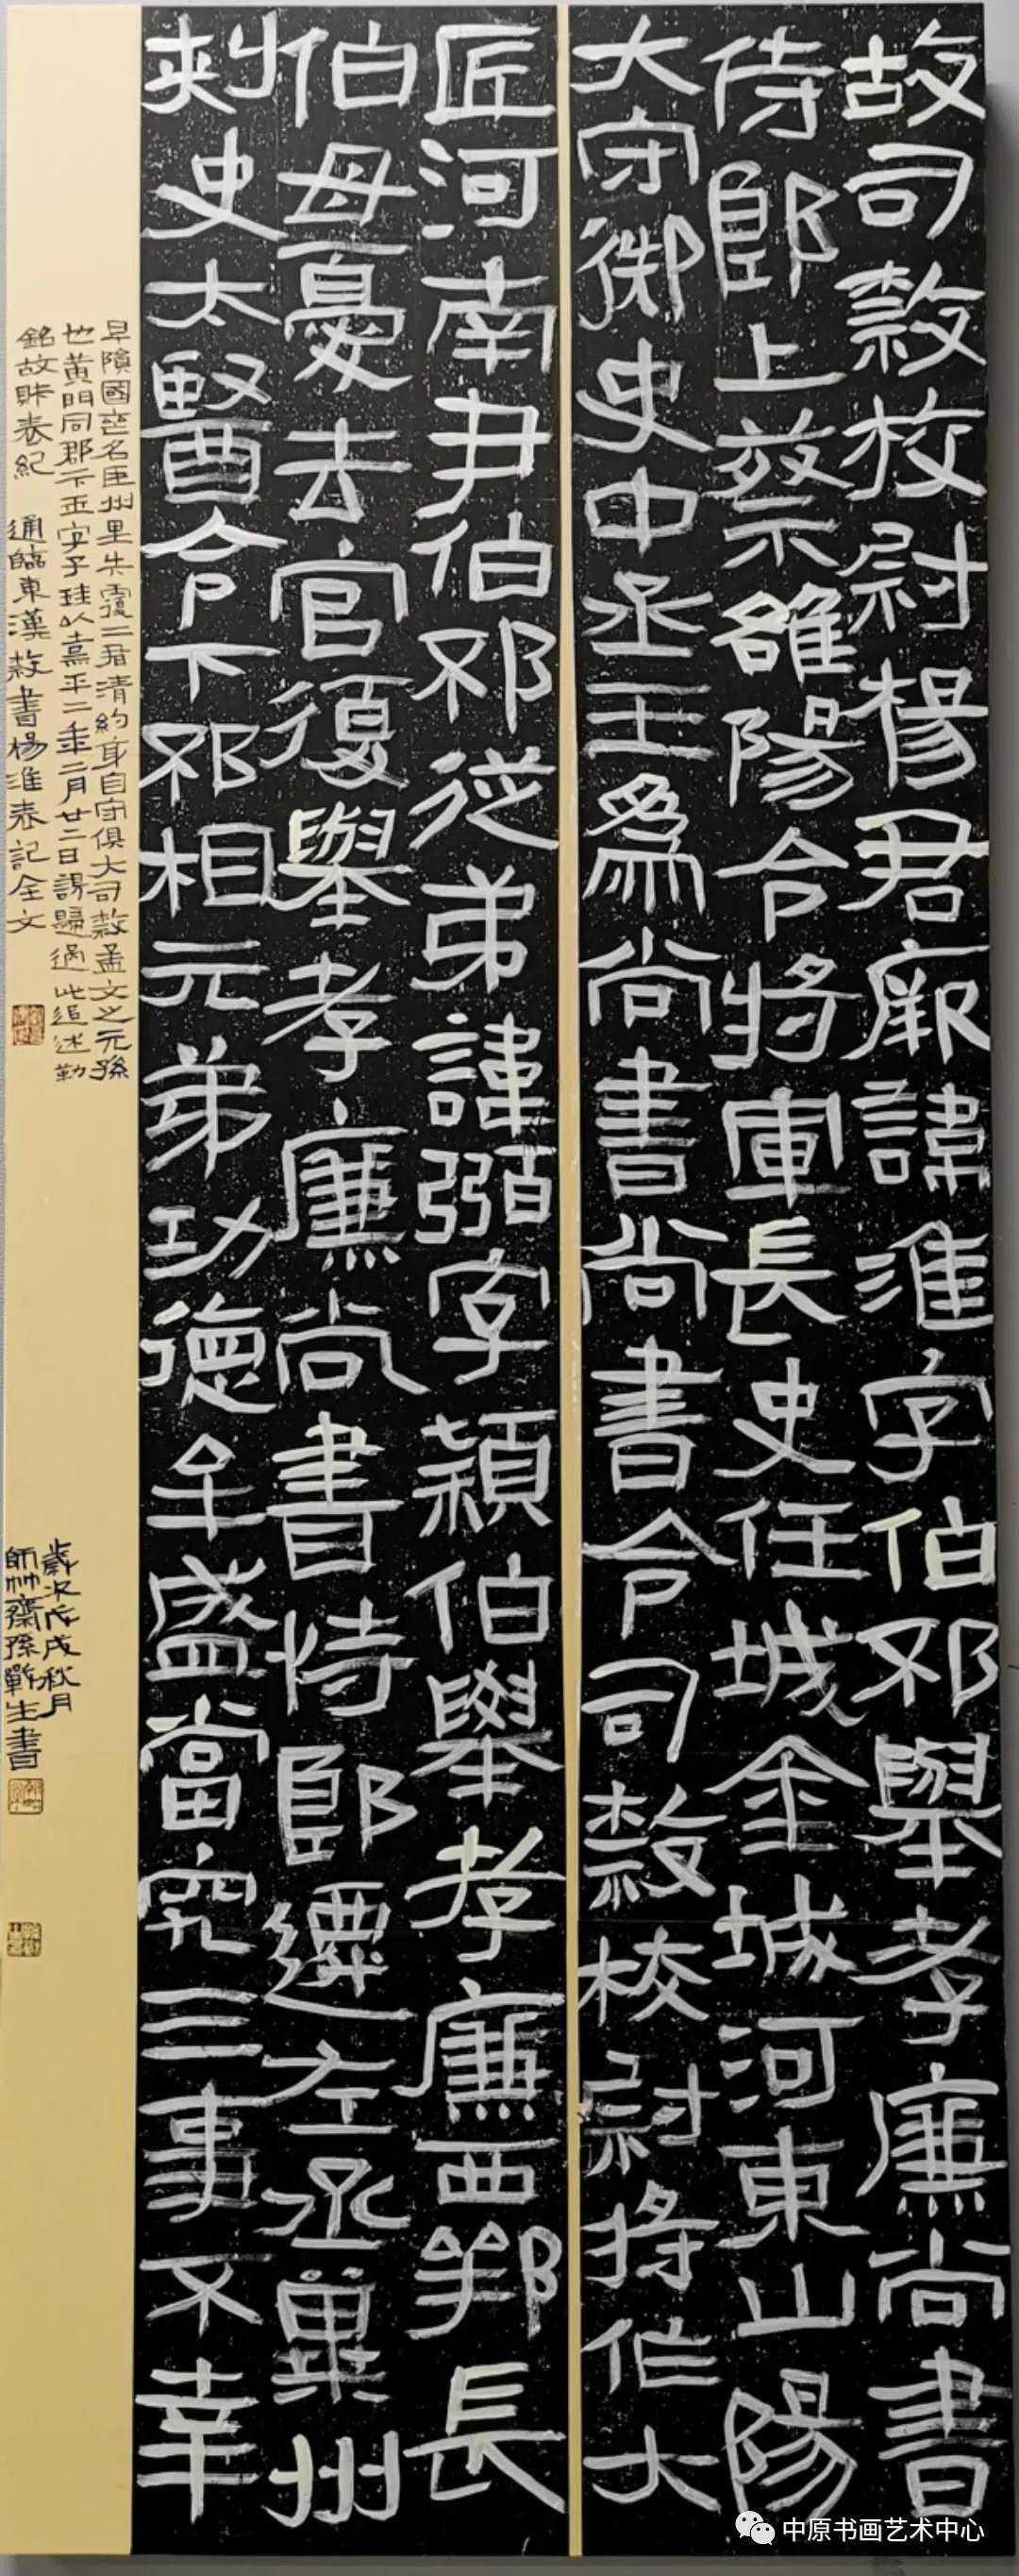 故司隸校尉楊君厥諱淮字伯邳舉孝廉尚書
侍郎上蔡雒陽令將軍長史任城金城河東山陽
大守御史中丞王為尚書尚書令司隸校尉將作大
匠河南尹伯邳從弟諱弼字穎伯舉孝廉西鄂長
伯母憂去官復舉孝廉尚書侍郎遷左丞冀州
刺史太醫令下邳相元弟功德牟盛當究三事不幸
早隕國喪名臣州里失覆二君清約身自守俱大司隸孟文之元孫
也黃門同郡卞玉字子珪以熹平二年二月廿二日謁歸過此追述勒
銘故財表紀 通臨東漢隸書楊淮表記全文
歲次戊戌秋月
師竹齋孫戰生書
中原书画艺术中心